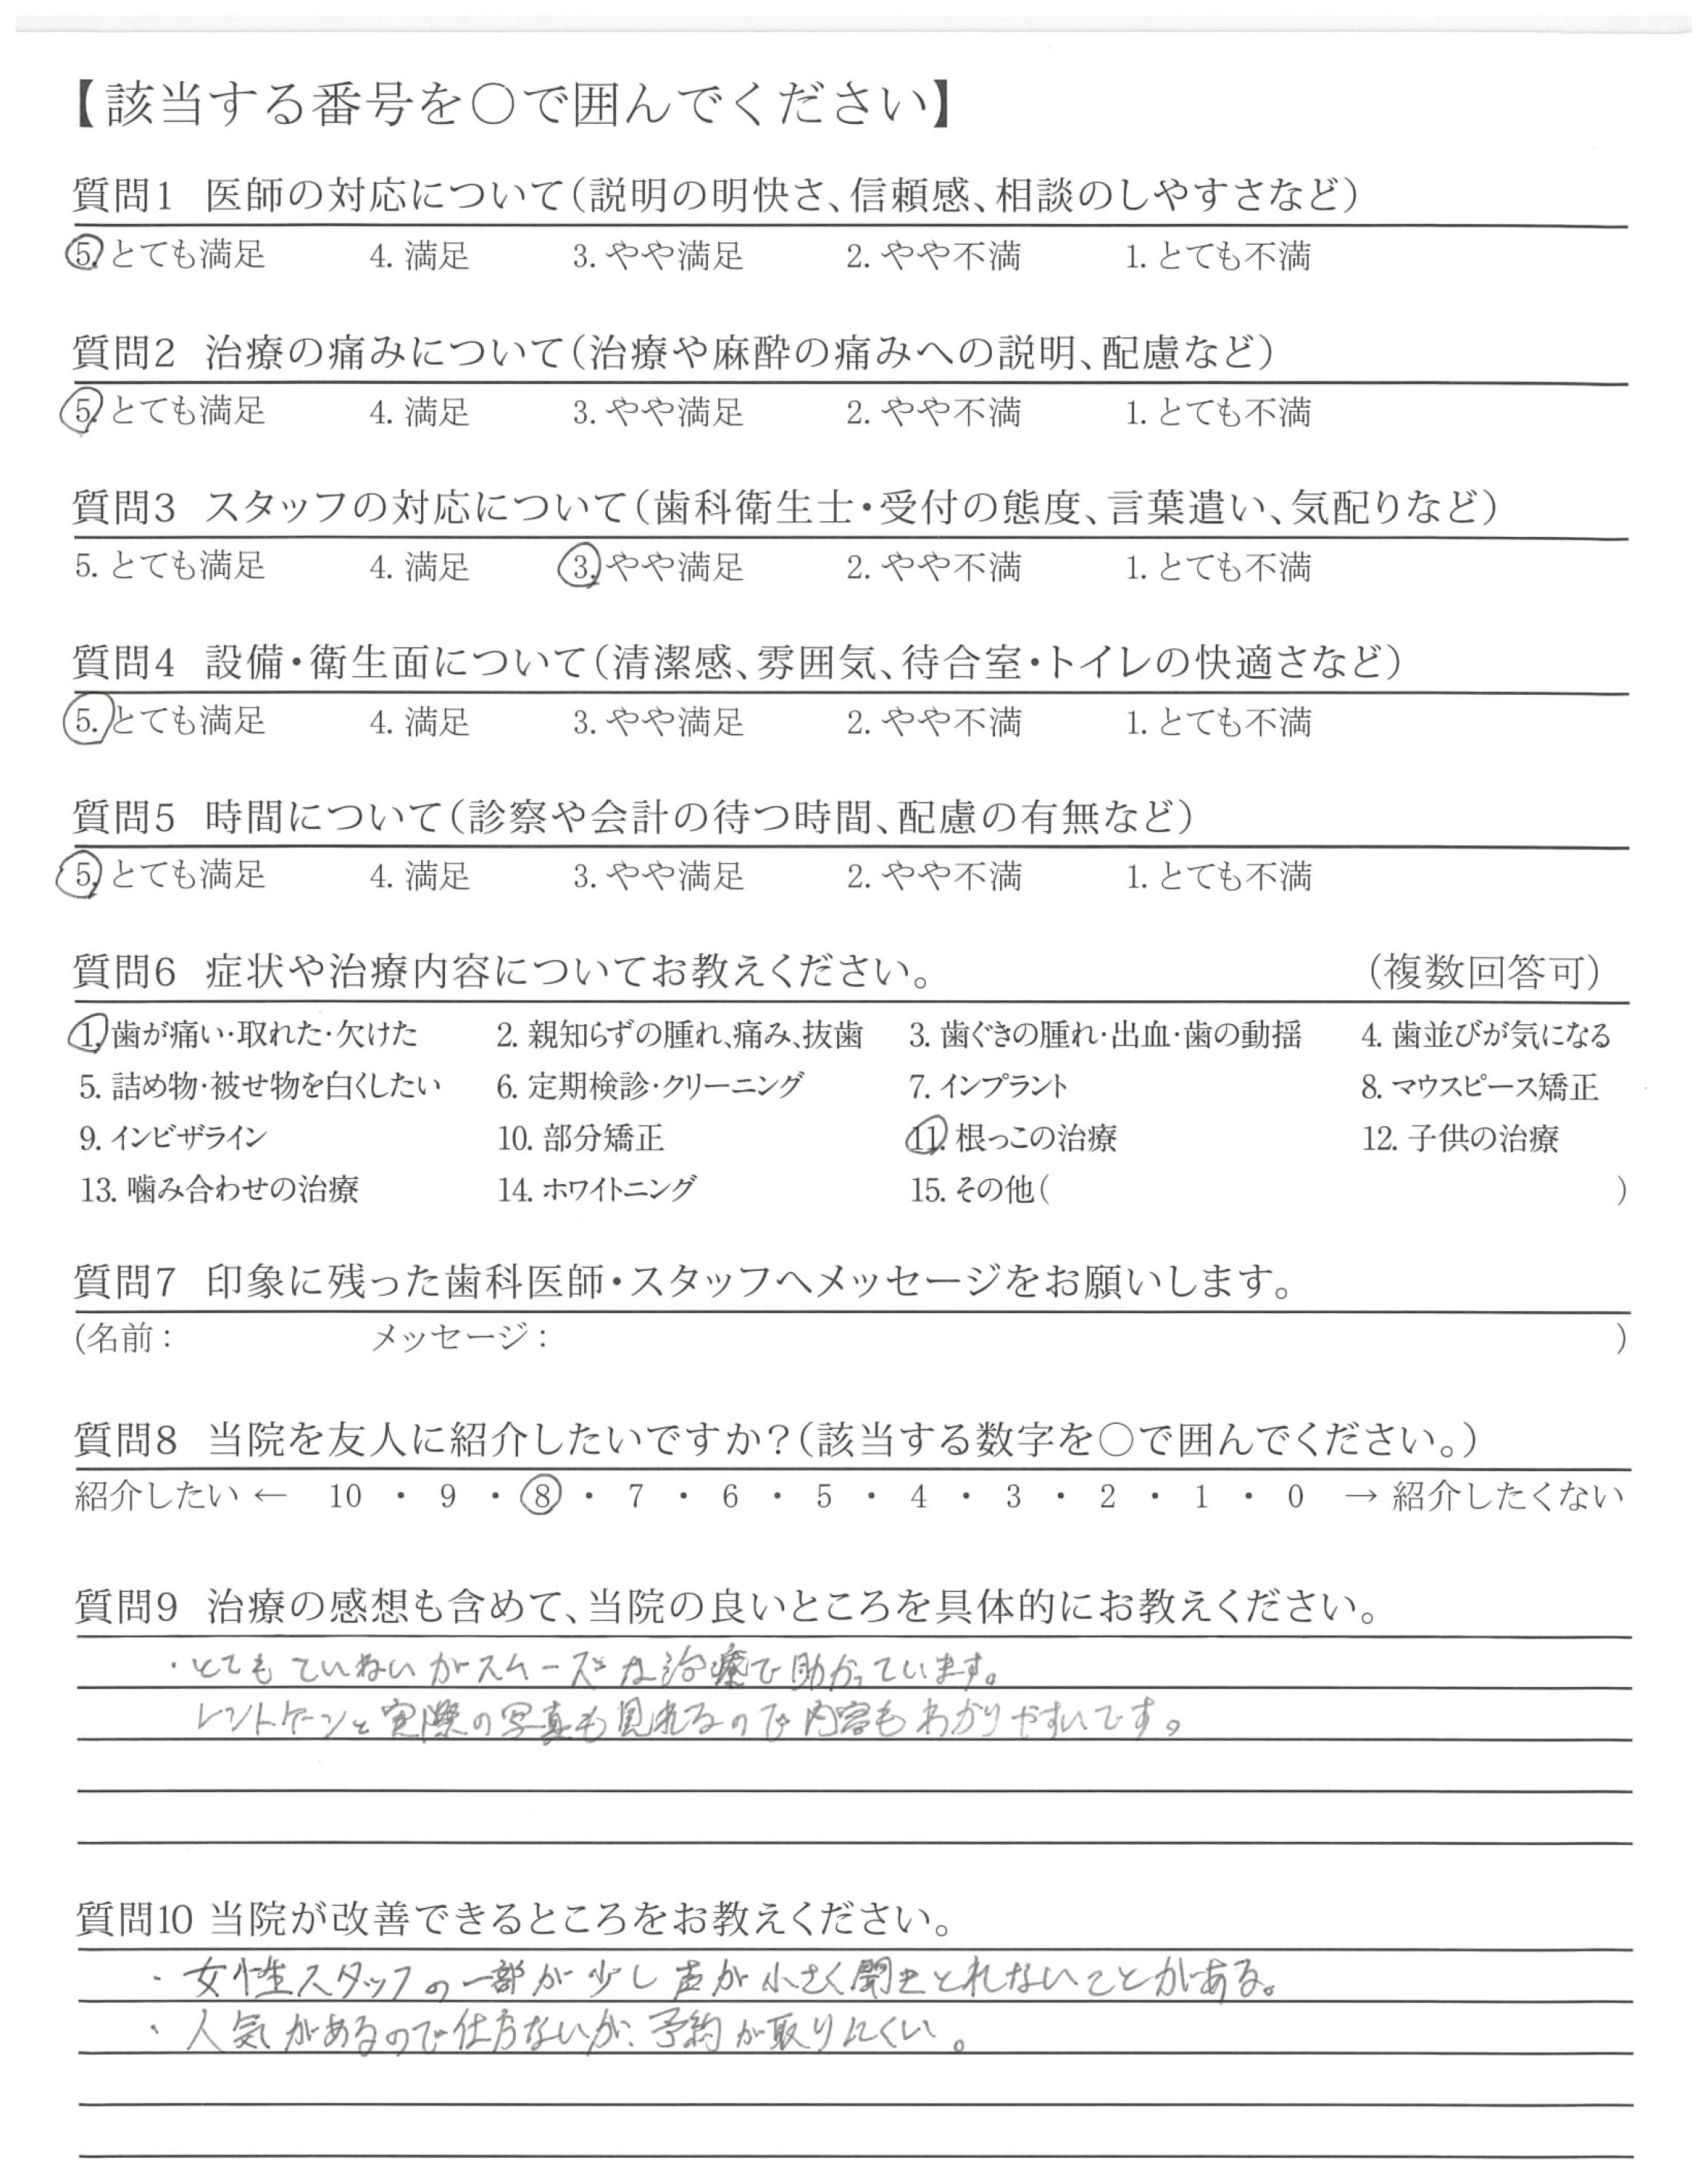 【該当する番号を○で囲んでください】
質問1 医師の対応について(説明の明快さ、信頼感、相談のしやすさなど)
5. とても満足 4. 満足 3. やや満足 2. やや不満 1. とても不満
質問2 治療の痛みについて(治療や麻酔の痛みへの説明、配慮など)
5. とても満足 4. 満足 3. やや満足 2. やや不満 1. とても不満
質問3 スタッフの対応について(歯科衛生士・受付の態度、言葉遣い、気配りなど)
5. とても満足 4. 満足 3. やや満足 2. やや不満 1. とても不満
質問4 設備・衛生面について(清潔感、雰囲気、待合室・トイレの快適さなど)
5. とても満足 4. 満足 3. やや満足 2. やや不満 1. とても不満
質問5 時間について(診察や会計の待つ時間、配慮の有無など)
5. とても満足 4. 満足 3. やや満足 2. やや不満 1. とても不満
質問6 症状や治療内容についてお教えください。 (複数回答可)
1. 歯が痛い・取れた・欠けた 2. 親知らずの腫れ、痛み、抜歯 3. 歯ぐきの腫れ・出血・歯の動揺 4. 歯並びが気になる
5. 詰め物・被せ物を白くしたい 6. 定期検診・クリーニング 7. インプラント 8. マウスピース矯正
9. インビザライン 10. 部分矯正 11. 根っこの治療 12. 子供の治療
13. 噛み合わせの治療 14. ホワイトニング 15. その他( )
質問7 印象に残った歯科医師・スタッフへメッセージをお願いします。
(名前: メッセージ: )
質問8 当院を友人に紹介したいですか?(該当する数字を○で囲んでください。)
紹介したい ← 10 ・ 9 ・ 8 ・ 7 ・ 6 ・ 5 ・ 4 ・ 3 ・ 2 ・ 1 ・ 0 → 紹介したくない
質問9 治療の感想も含めて、当院の良いところを具体的にお教えください。
・とても ていねいがスムーズな治療で助かっています。
レントゲンと実際の写真も見れるので内容もわかりやすいです。
質問10 当院が改善できるところをお教えください。
・女性スタッフの一部が少し声が小さく聞きとれないことがある。
・人気があるので仕方ないが、予約が取りにくい。